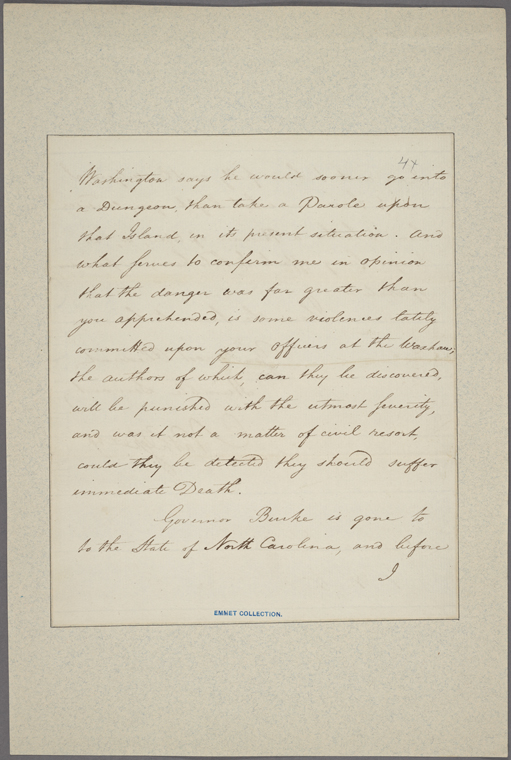 44
Washington says he would sooner go into
a Dungeon, than take a Parole upon
that Island, in its present situation. And
what serves to confirm me in opinion
that the danger was far greater than
you apprehended, is some violences lately
committed upon your Officers at the Waxhaws,
the authors of which, can they be discovered,
will be punished with the utmost severity,
and was it not a matter of civil resort,
could they be detected they should suffer
immediate Death.
Governor Burke is gone to
to the State of North Carolina, and before
I
EMMET COLLECTION.